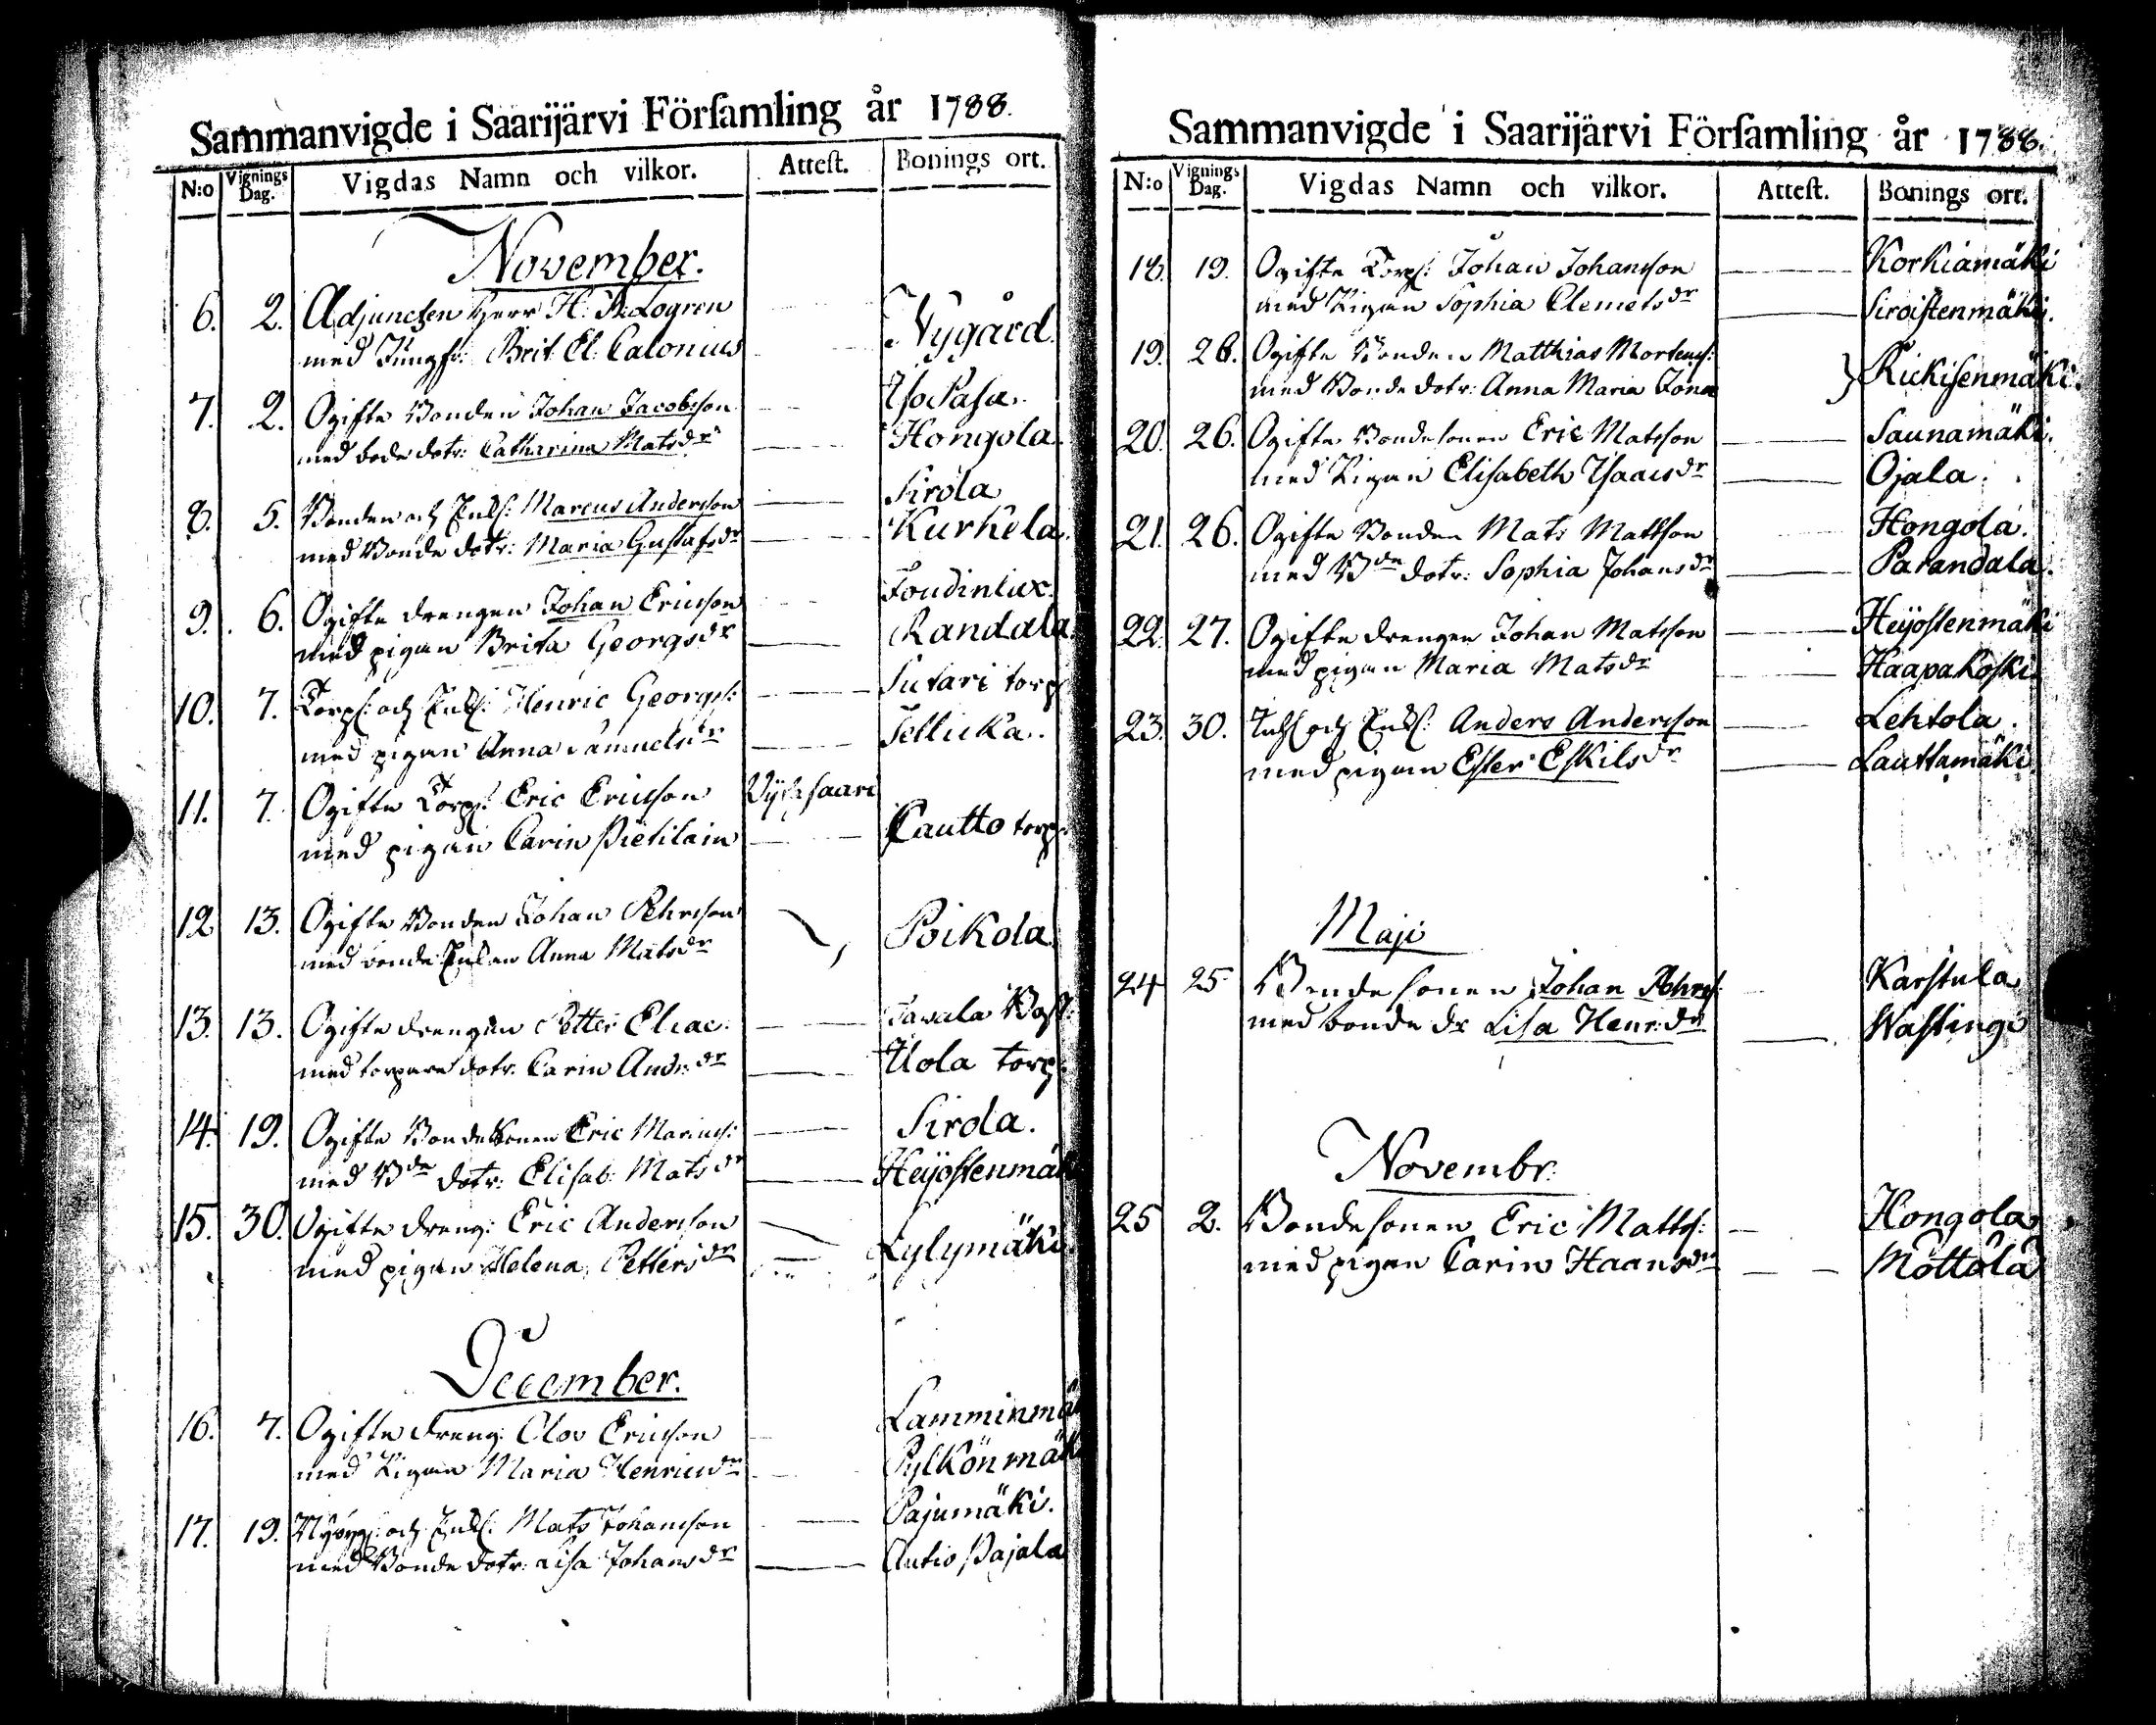 Sammanvigde i Saarijärvi Förſamling år 1788.
N:o Vignings Dag. Vigdas Namn och vilkor. Atteſt. Bonings ort.
November.
6. 2. Adjuncten Herr H: Logren
med Jungfr: Brit. El. Calonius Nygård
7. 2. Ogifte Bonden Johan Jacobsson
med bode dotr: Catharina Matsdr Hongola
8. 5. Bonden och Enkl: Marcus Andersson Sirola
med Bonde dotr: Maria Gustafsdr Kurkela
9. 6. Ogifte drengen Johan Ericsson
med pigan Brita Georgsdr Randala
10. 7. Torp: och Enkl: Henric Georgs: Sutari torp
med pigan Anna Samuelsdr Tellicka.
11. 7. Ogifte Torp: Eric Ericsson
med pigan Carin Pietilain Cautto torp
12 13. Ogifte Bonden Johan Pehrsson
med bonde Enkan Anna Matsdr Poikola
13. 13. Ogifte drengen Petter Eliae.
med torpare dotr. Carin Andr:dr Uola torp:
14. 19. Ogifte Bondesonen Eric Marcus: Sirola.
med Bde dotr: Elisab: Matsdr Heijostenmäk
15. 30. Ogifte dreng: Eric Andersson
med pigan Helena Pettersdr Lylymäki
December.
16. 7. Ogifte dreng: Olov Ericsson Lamminmä
med Pigan Maria Henricsdr Pylkönmäk
17. 19. Nybygg: och Enkl: Mats Johansson Pajumäki.
med Bonde dotr: Lisa Johansdr Autio Pajala
Sammanvigde i Saarijärvi Förſamling år 1788.
N:o Vignings Dag. Vigdas Namn och vilkor. Atteſt. Bonings ort.
18. 19. Ogifte Torp: Johan Johansson Korkiamäki
med Pigan Sophia Clemetsdr
19. 26. Ogifte Bonden Matthias Mortens:
med Bonde dotr: Anna Maria Jonae Kickisenmäki.
20. 26. Ogifte Bondesonen Eric Matsson Saunamäki.
med Pigan Elisabeth Isaacsdr Ojala.
21. 26. Ogifte Bonden Mats Mattson Hongola.
med Bde dotr: Sophia Johansdr Parandala.
22. 27. Ogifte drengen Johan Matsson Heijostenmäki
med pigan Maria Matsdr Haapakoski.
23. 30. Inhs: och Enkl: Anders Andersson Lehtola.
med pigan Ester Eskilsdr Lauttamäki.
Maji
24 25 Bonde sonen Johan Pehrs: Karstula
med bonde dr Lisa Henr:dr Wastingi
Novembr:
25 2. Bondesonen Eric Matts: Hongola
med pigan Carin Haansdr Möttölä